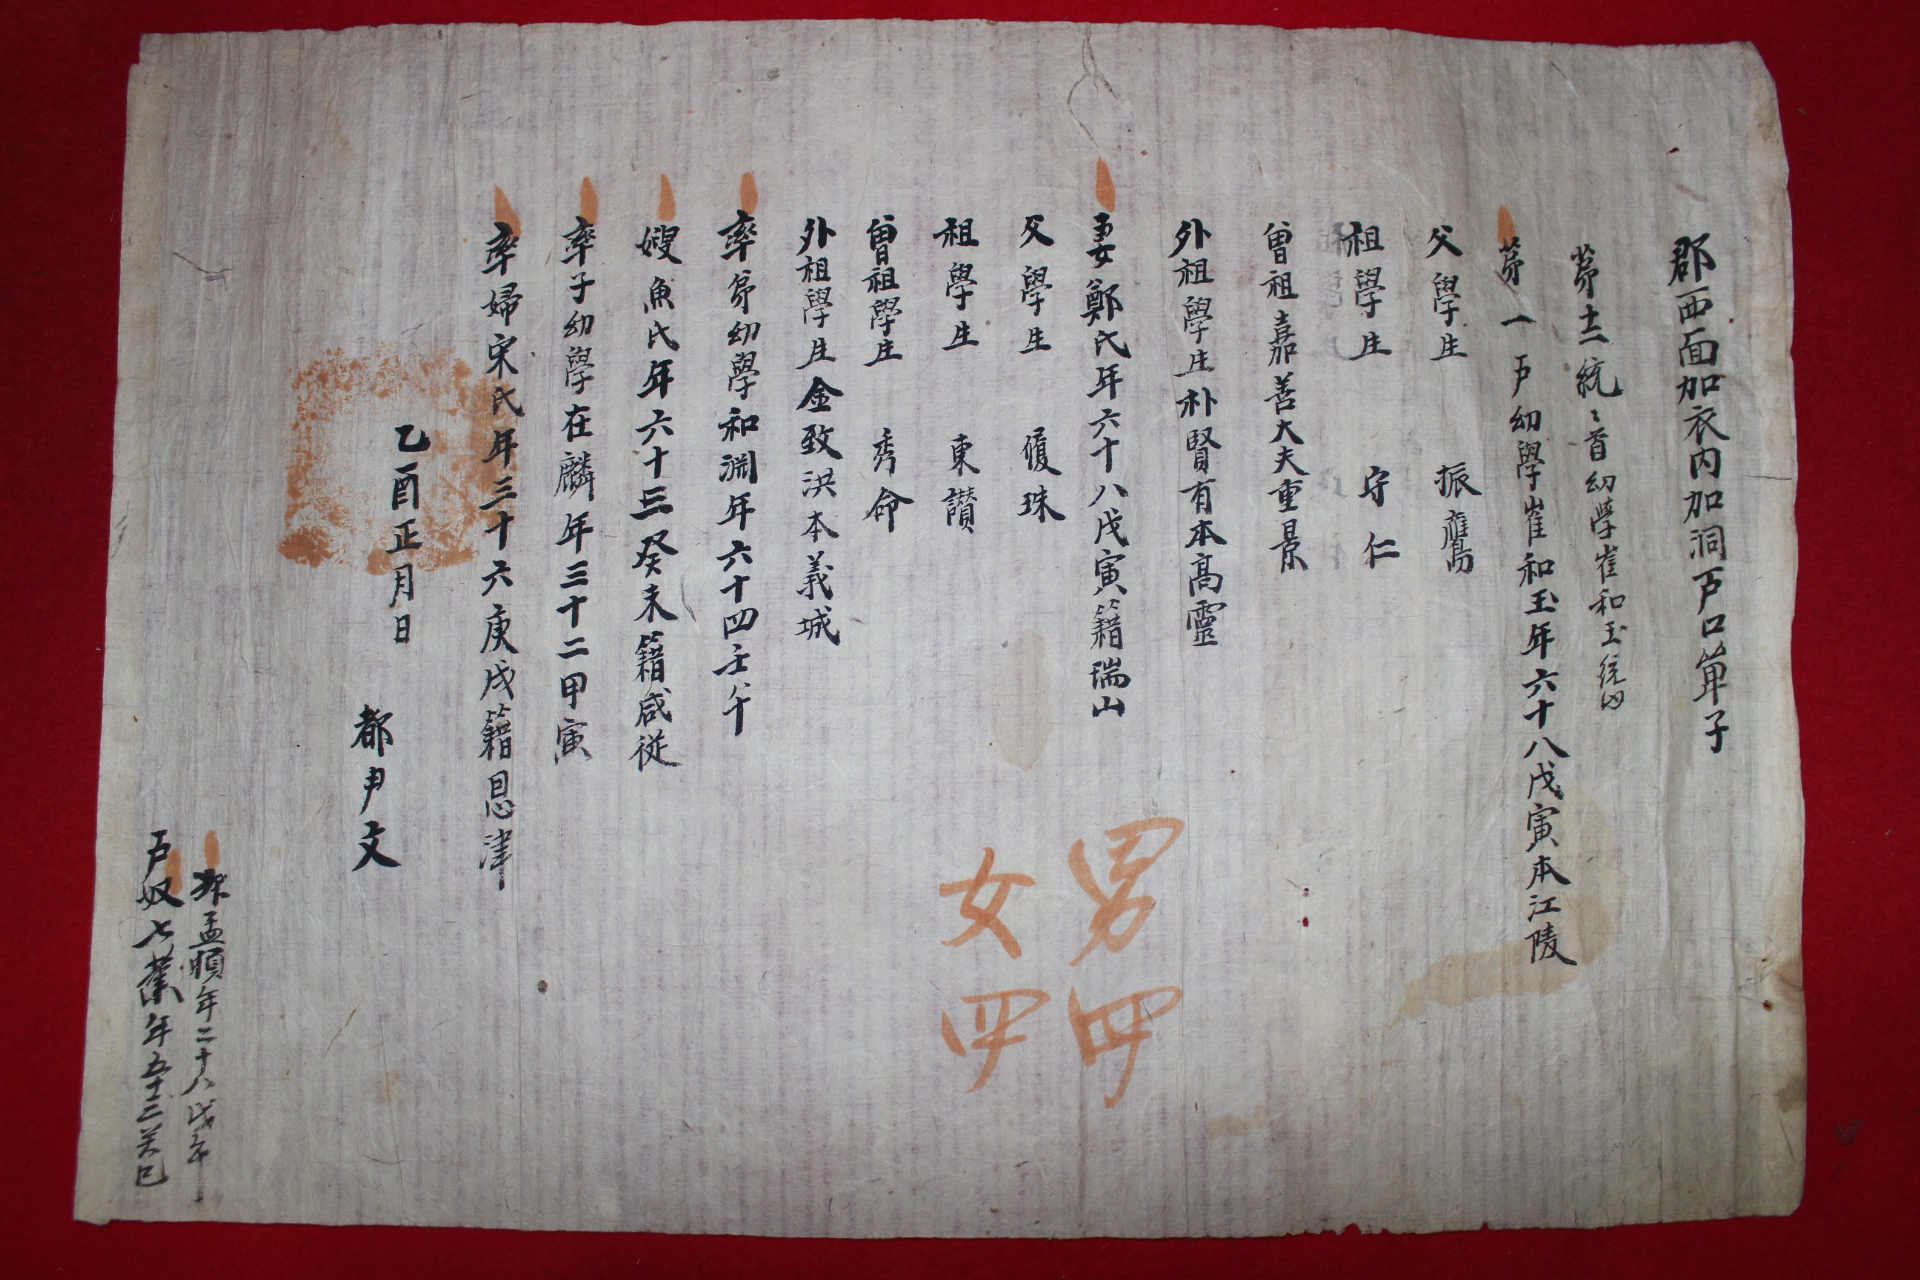 郡西面加衣內加洞戶口單子
第十二統統首幼學崔和玉統內
第一戶幼學崔和玉年六十八戊寅本江陵
父學生 振鷹
祖學生 守仁
曾祖嘉善大夫重景
外祖學生朴賢有本高靈
妻鄭氏年六十八戊寅籍瑞山
父學生 復珠
祖學生 東讃
曾祖學生 秀命
外祖學生金致洪本義城
率弟幼學和渊年六十四壬午
嫂魚氏年六十三癸未籍咸從
率子幼學在麟年三十二甲寅
率婦宋氏年三十六庚戌籍恩津
乙酉正月日
都尹文
孟順年二十八戊午
戶奴七業年五十三癸巳
男四
女四